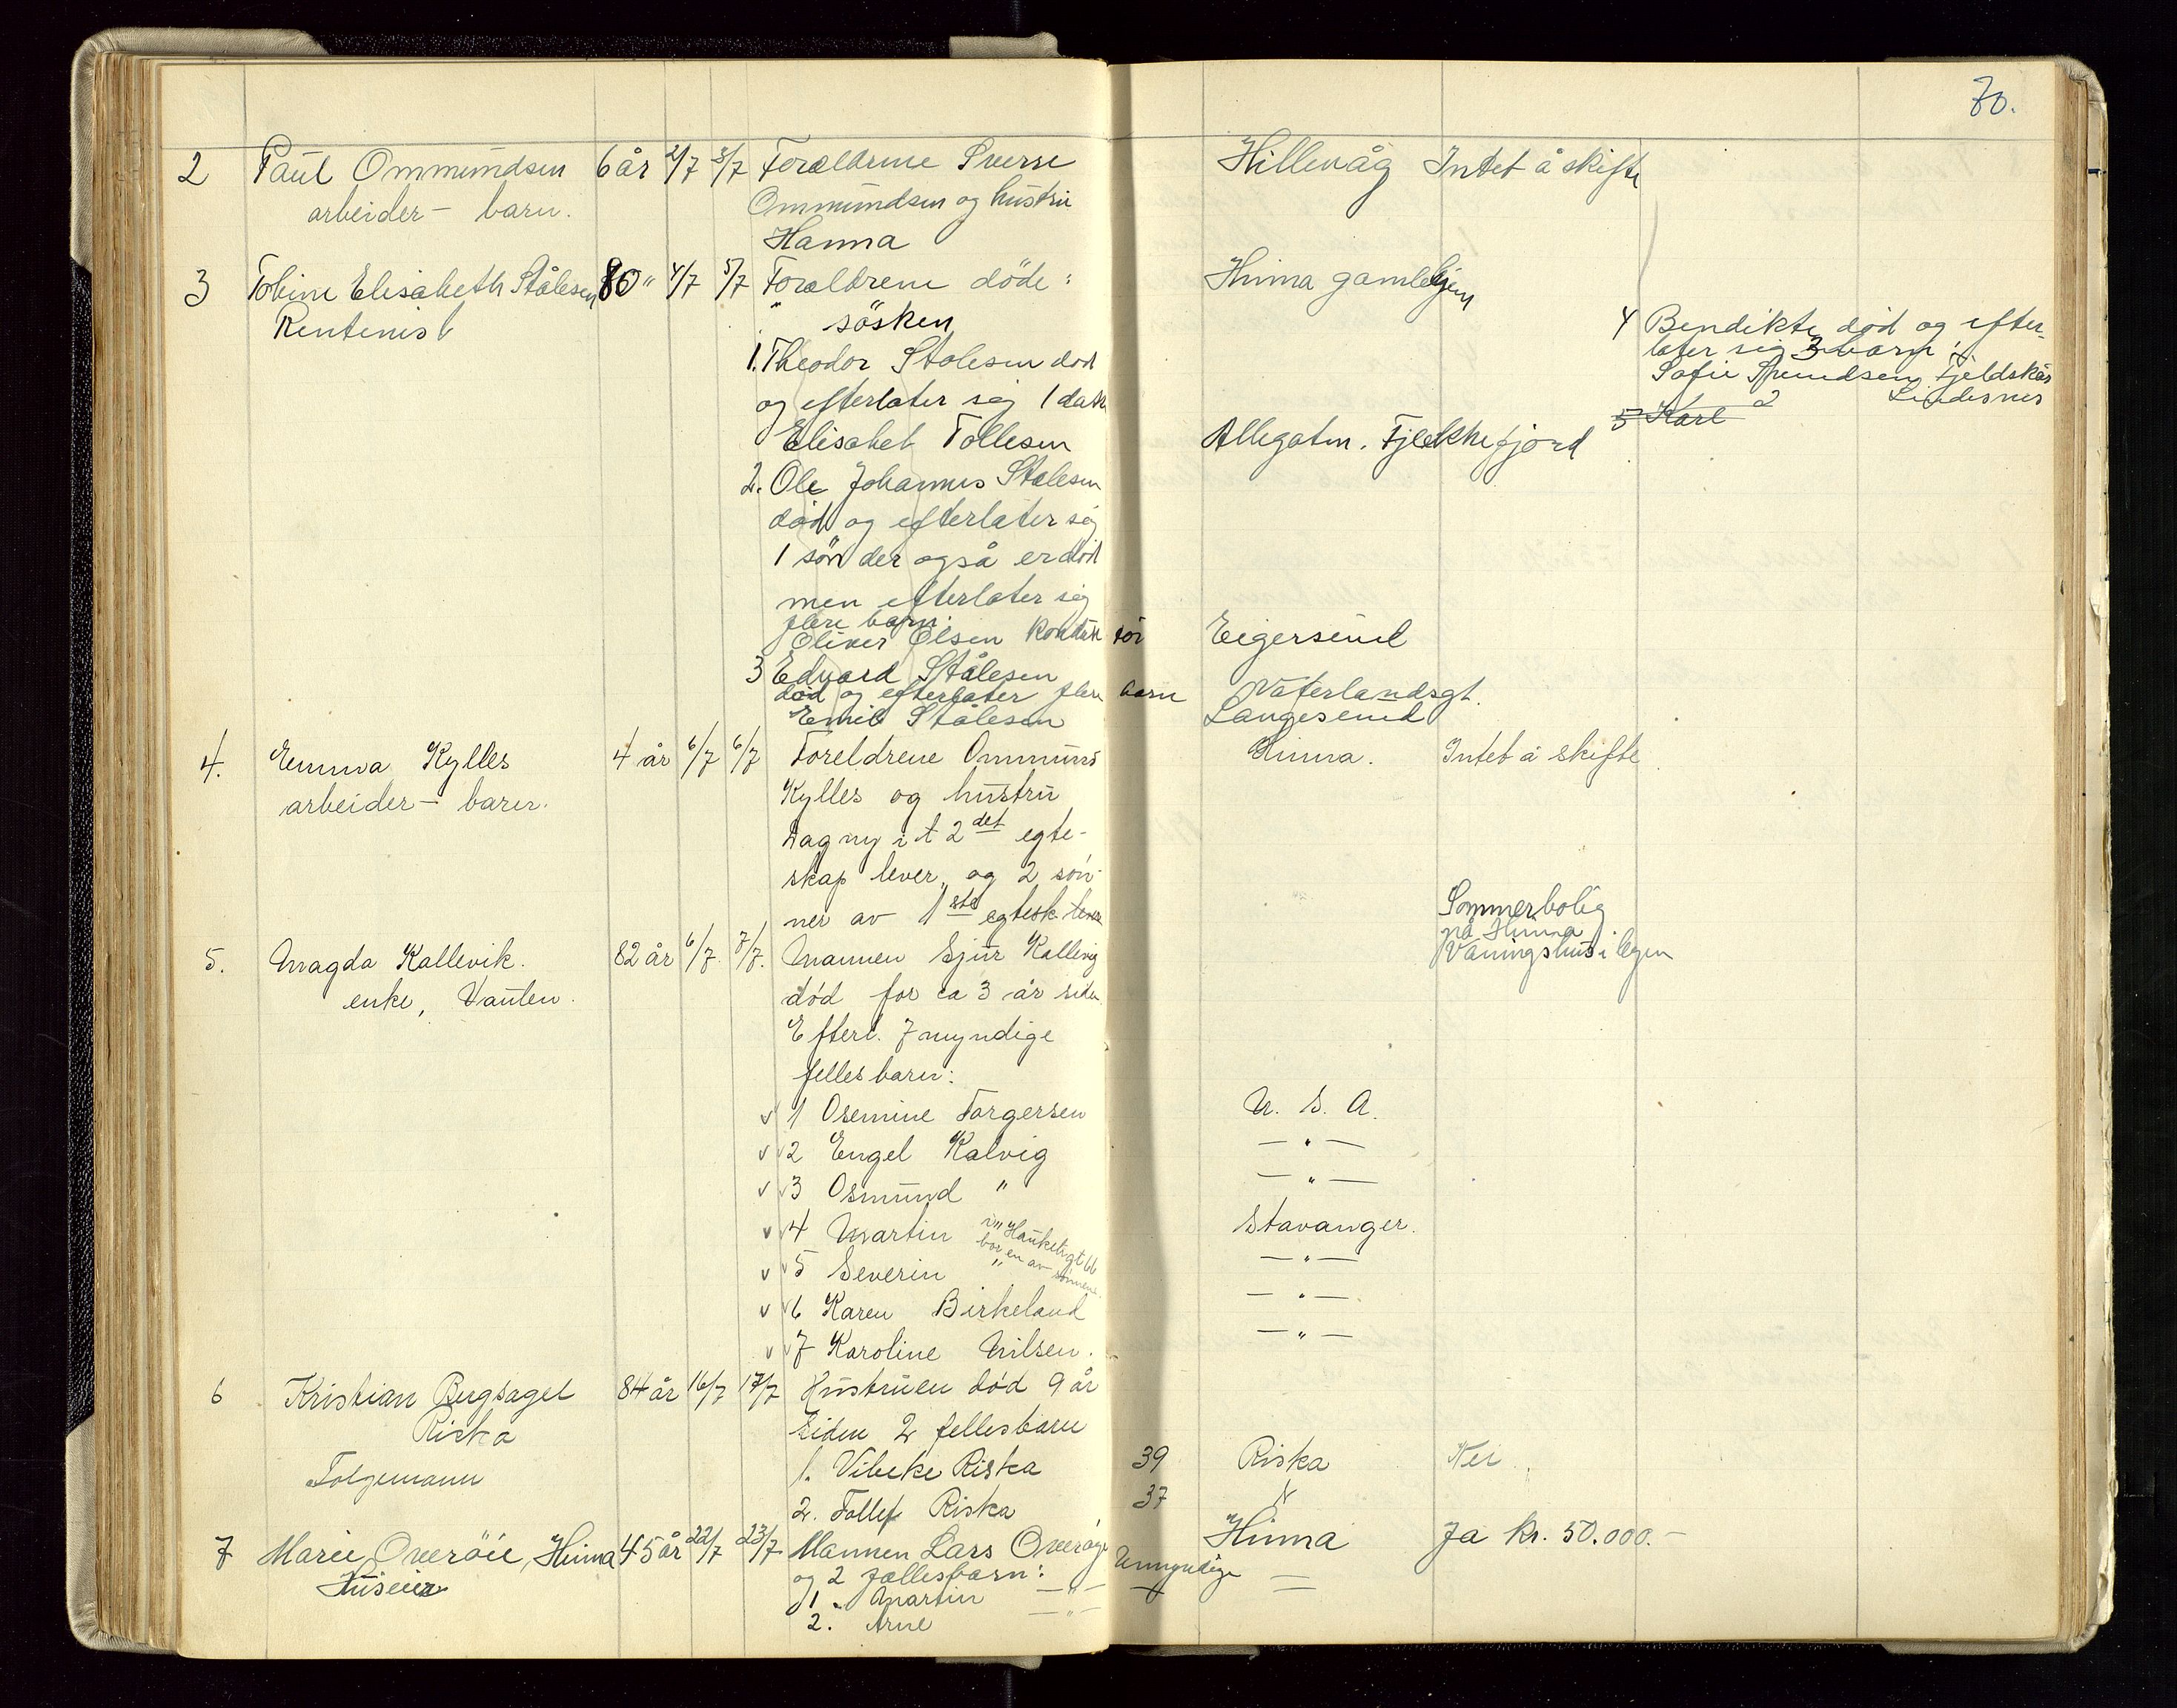 70.
2 Paul Ommundsen 6 år 2/7 3/7 Forældrene Sverre Hillevåg Intet å skifte
arbeider - barn. Ommundsen og hustru
Hanna
3 Tobine Elisabeth Stålesen 80 " 4/7 5/7 Forældrene döde: Hinna gamlehjem
Rentenist " søsken
1. Theodor Stolesen död
og efterlater sig 1 datt
Elisabet Tollesen Allegaten. Fjekkefjord
2. Ole Johannes Stalesen
död og efterlater sig
1 sön der også er död
men efterlater sig
flere barn.
Oliver Olsen Konduktör Eigersund
3 Edvard Stålesen
död og efterlater flere barn Vaterlandsgt.
Emil Stålesen Langesund
4 Bendikte död og efter-
later sig 3 barn:
Sofie Svendsen, Fjeldskår
Lindesnes
5 Karl
4. Emma Kylles 4 år 6/7 6/7 Foreldrene Ommund Hinna. Intet å skifte
arbeider - barn. Kylles og hustru
Dagny i t 2det egte-
skap lever, og 2 søn-
ner av 1ste egtesk. lever
5. Magda Kallevik. 82 år 6/7 7/7. Mannen Sjur Kallevig Sommerbolig
på Hinna
Våningshus i byen
enke, Vaulen. død for ca 3 år siden
Efterl. 7 myndige
felles barn:
v 1 Osemine Torgersen U. S. A.
v v 2 Engel Kalvig — " —
v v 3 Osmund " — " —
v v 4 Martin " Stavanger.
i Haukeligt 66
bor en av sønnene
v v 5 Severin " — " —
v v 6 Karen Birkeland — " —
v v 7 Karoline Nilsen. — " —
6 Kristian Bergsagel 84 år 16/7 17/7 Hustruen død 9 år
Riska siden 2 fellesbarn
Folgemann 1. Vibeke Riska 39 Riska Nei.
2. Tollef Riska 37 "
7 Marie Overöie, Hinna 45 år 22/7 23/7 Mannen Lars Overöye Hinna Ja kr. 50.000.-
Huseier og 2 fællesbarn: Umyndige
1. Martin — " —
2. Arne — " —